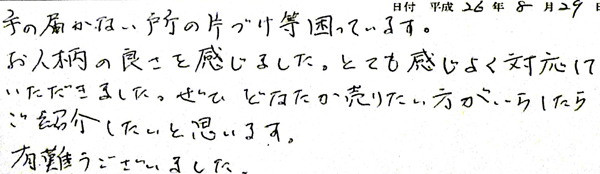 日付 平成 26 年 8 月 29 日
手の届かない所の片づけ等困っています。
お人柄の良さを感じました。とても感じよく対応して
いただきました。ぜひ どなたか売りたい方がいらしたら
ご紹介したいと思います。
有難うございました。